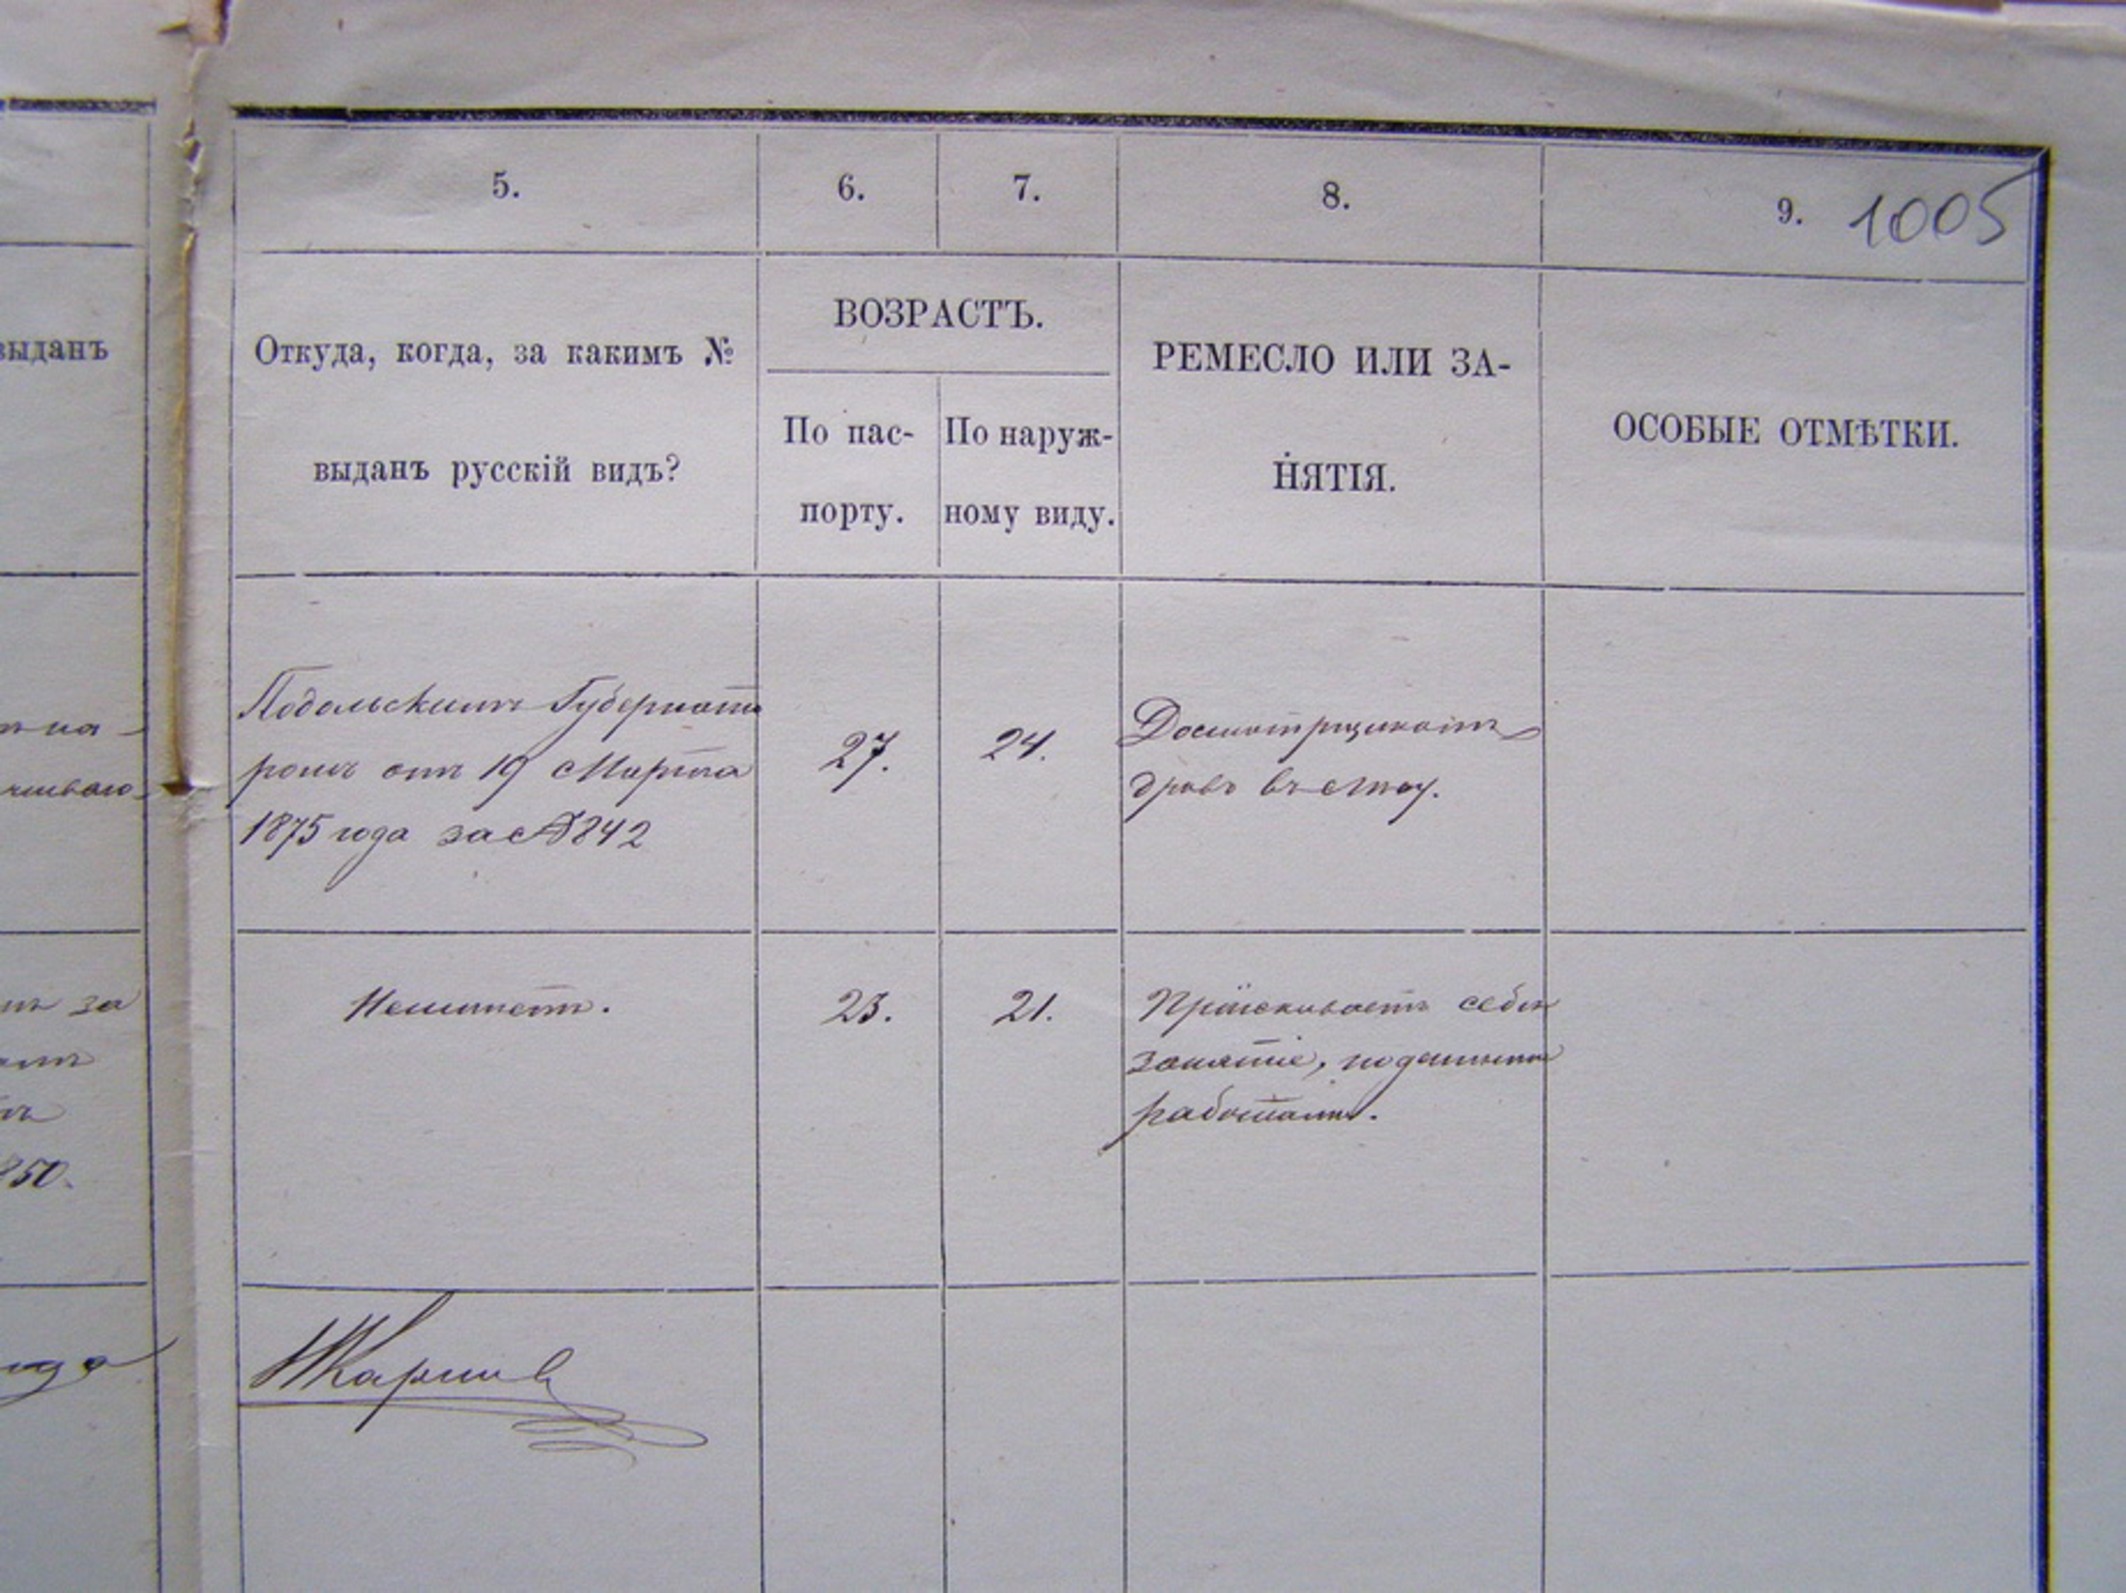 5.
6.
7.
8.
9. 1005
выданъ
Откуда, когда, за какимъ №
выданъ русскій видъ?
ВОЗРАСТЪ.
По пас-
порту.
По наруж-
ному виду.
РЕМЕСЛО ИЛИ ЗА-
НЯТІЯ.
ОСОБЫЕ ОТМѢТКИ.
Подольскимъ Губернато
ромъ отъ 19 Марта
1875 года за № 842
27.
24.
Досмотрщикомъ
дровъ въ
Неимѣетъ.
23.
21.
Пріискиваетъ себѣ
занятіе,
работами.
за
850.